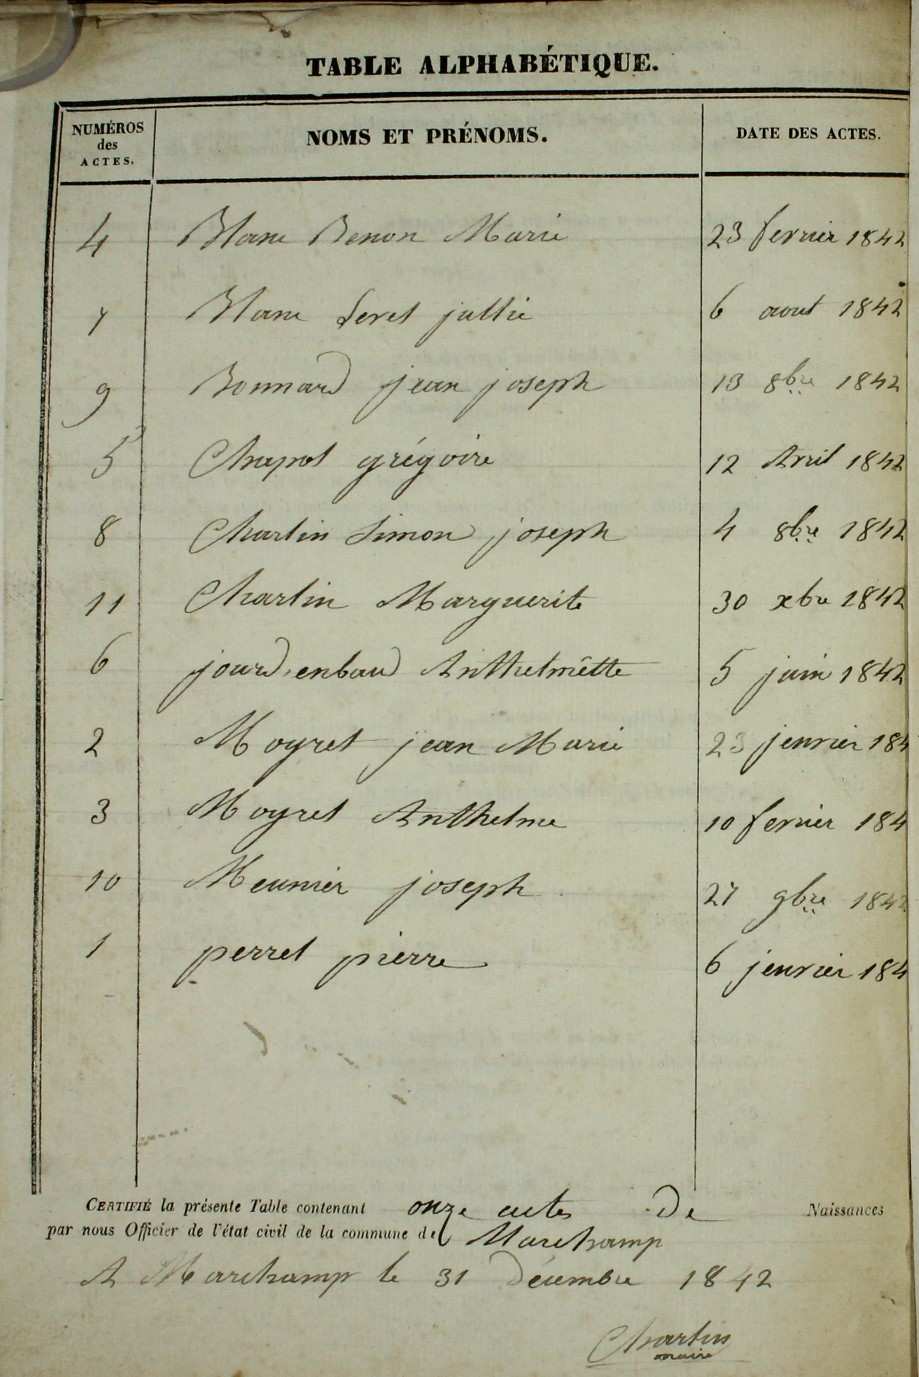 TABLE ALPHABÉTIQUE.
NUMÉROS des ACTES. NOMS ET PRÉNOMS. DATE DES ACTES.
4 Blanc Benon Marie 23 fevrier 1842
7 Blanc Feret jullie 6 aout 1842
9 Bonnard jean joseph 13 8bre 1842
5 Chapot grégoire 12 Avril 1842
8 Charlin Simon joseph 4 8bre 1842
11 Charlin Marguerite 30 xbre 1842
6 jourd,enbaud Anthelmette 5 juin 1842
2 Moyret jean Marie 23 jenvier 184
3 Moyret Anthelme 10 fevrier 184
10 Meunier joseph 27 9bre 1842
1 perret pierre 6 jenvier 184
CERTIFIÉ la présente Table contenant onze actes de Naissances
par nous Officier de l'état civil de la commune de Marchamp
A Marchamp le 31 Décembre 1842
Charlin
maire